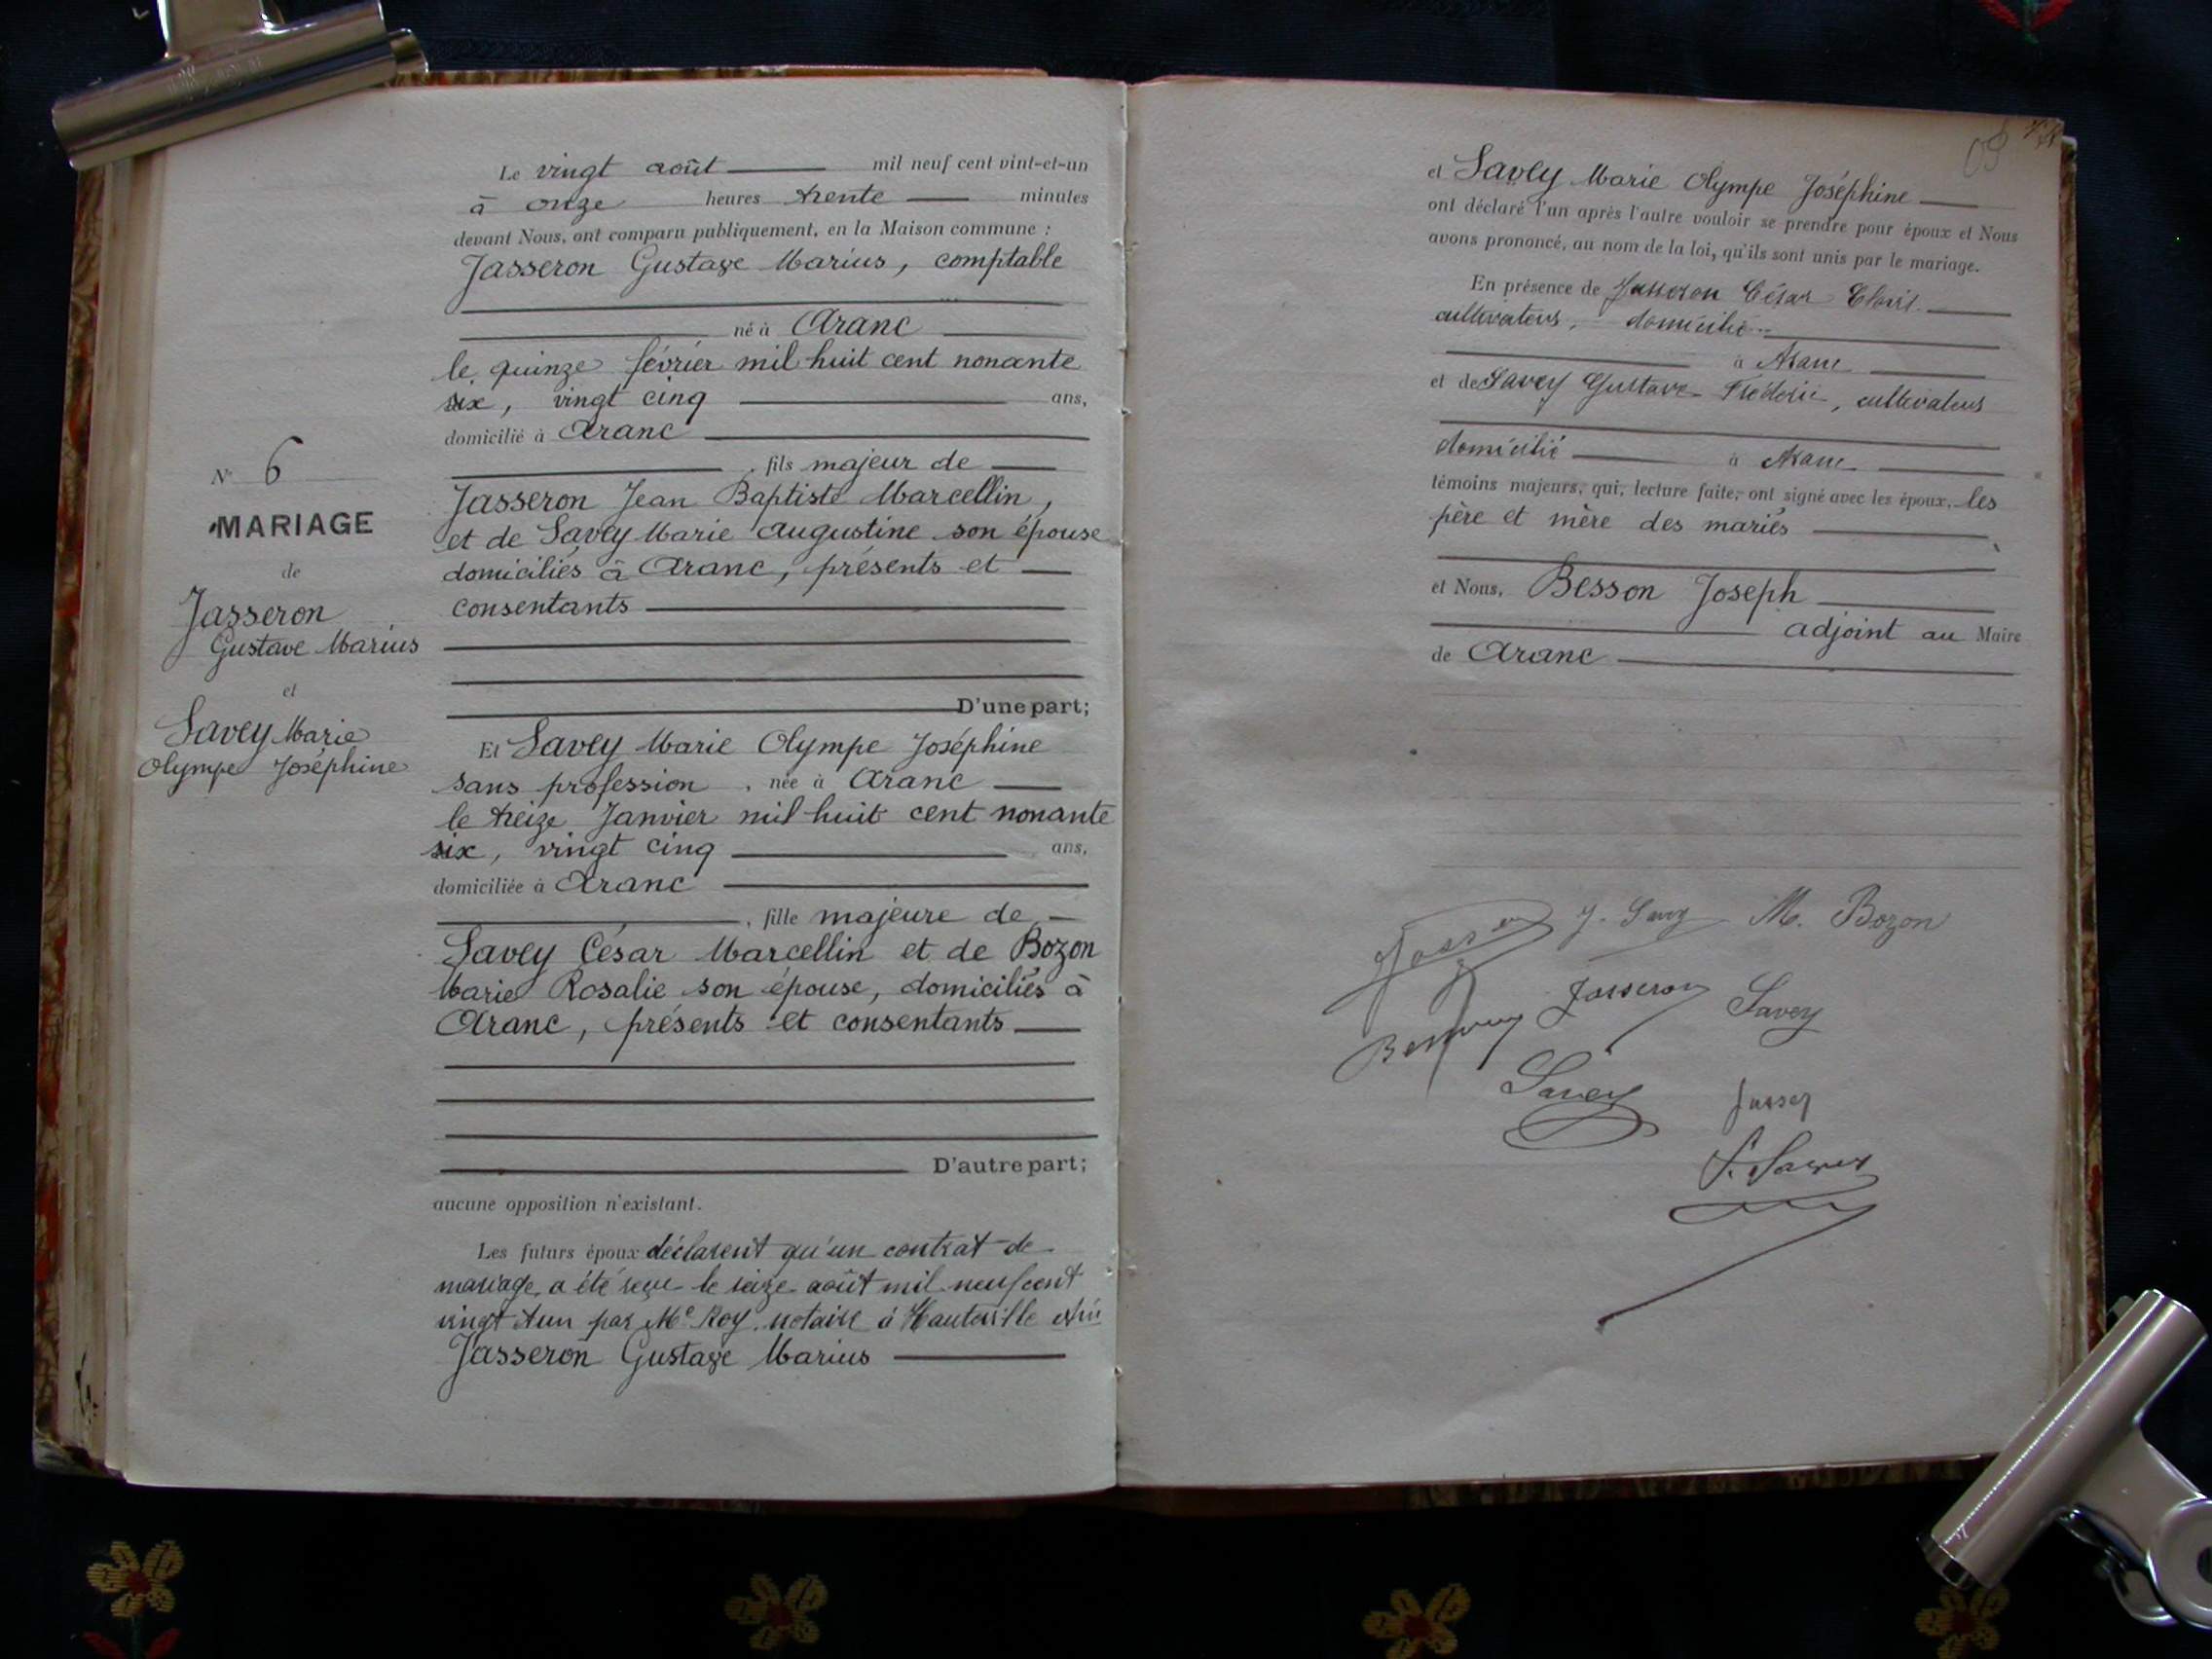 N° 6
MARIAGE
de
Jasseron
Gustave Marius
et
Savey Marie
Olympe Joséphine
Le vingt août mil neuf cent vint-et-un
à onze heures trente minutes
devant Nous, ont comparu publiquement, en la Maison commune :
Jasseron Gustave Marius, comptable
né à Aranc
le quinze février mil huit cent nonante
six, vingt cinq ans,
domicilié à Aranc
, fils majeur de
Jasseron Jean Baptiste Marcellin,
et de Savey Marie Augustine son épouse
domiciliés à Aranc, présents et
consentants
D'une part;
Et Savey Marie Olympe Joséphine
sans profession , née à Aranc
le treize Janvier mil huit cent nonante
six, vingt cinq ans,
domiciliée à Aranc
, fille majeure de
Savey César Marcellin et de Bozon
Marie Rosalie son épouse, domiciliés à
Aranc, présents et consentants
D'autre part;
aucune opposition n'existant.
Les futurs époux déclarent qu'un contrat de
mariage a été reçu le seize août mil neuf cent
vingt et un par Me Roy, notaire à Hauteville
Jasseron Gustave Marius
et Savey Marie Olympe Joséphine
ont déclaré l'un après l'autre vouloir se prendre pour époux et Nous
avons prononcé, au nom de la loi, qu'ils sont unis par le mariage.
En présence de Jasseron César
cultivateur, domicilié
à Aranc
et de Savey Gustave Frédéric, cultivateur
domicilié à Aranc
témoins majeurs, qui, lecture faite, ont signé avec les époux, les
père et mère des mariés
et Nous, Besson Joseph
adjoint au Maire
de Aranc
J. Savey M. Bozon
Jasseron Savey
Besson
Savey
S. Savey